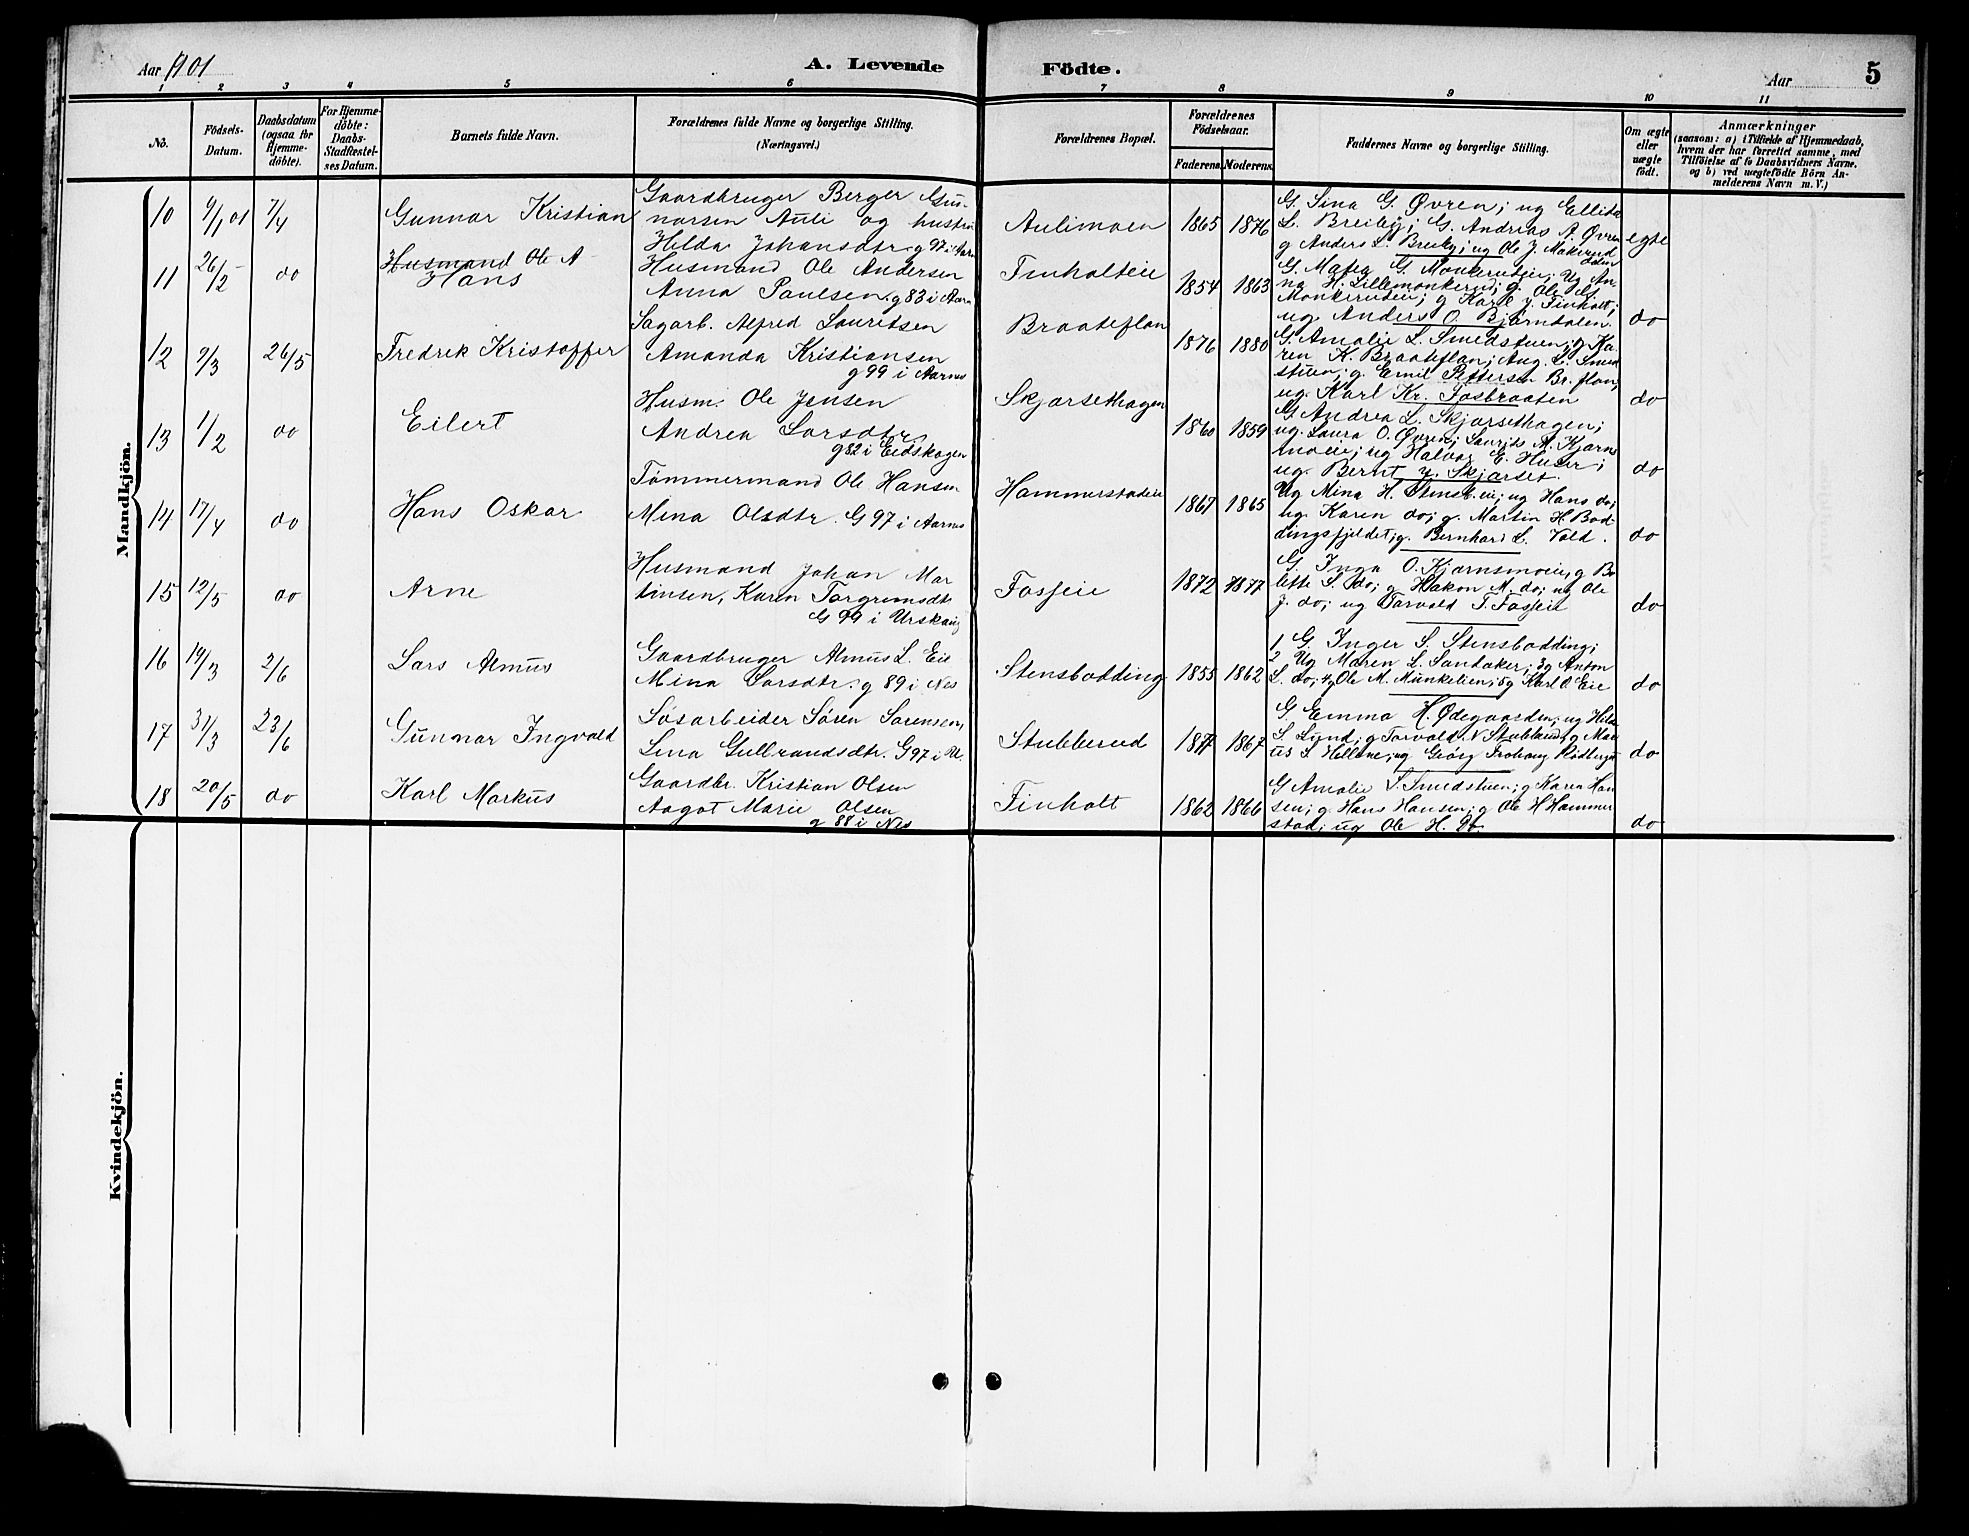 Aar 1901
A. Levende Födte.
Aar 5
1 2 3 4 5 6 7 8 9 10 11
No.
Födsels-Datum.
Daabsdatum (ogsaa for Hjemmedöbte).
For Hjemmedöbte: Daabs-Stadfæstelses Datum.
Barnets fulde Navn.
Forældrenes fulde Navne og borgerlige Stilling. (Næringsvei.)
Forældrenes Bopæl.
Forældrenes Födselsaar.
Faderens. Moderens.
Faddernes Navne og borgerlige Stilling.
Om ægte eller uægte födt.
Anmærkninger
(saasom: a) i Tilfælde af Hjemmedaab, hvem der har forrettet samme, med Tilföielse af to Daabsvidners Navne. og b) ved uægtefödte Börn Anmelderens Navn m. V.)
Mandkjön.
10 9/1 01 7/4 Gunnar Kristian
Gaardbruger Berger Gun-
narsen Auli og hustru
Hilda Johansdtr g 97 i Aarn
Aulimoen 1865 1876
G. Sina G. Øvren; ug Ellida
L. Breiby; G. Andreas A. Øvren
g Anders L. Breiby; ug Ole J. Makerud
egte
11 26/2 do Husmand Ole A-
Hans
Husmand Ole Andersen
Anna Paulsen. g 83 i Aarn
Finholteie 1854 1863
G. Matea G. Monkerudeie; Ug An-
na H. Lillemonkerud; g. Ole G.
Monkerudeie; g Karl J. Finholt;
ug. Anders O. Bjørndalen.
do
12 9/3 26/5 Fredrik Kristoffer
Sagarb. Alfred Lauritsen
Amanda Kristiansen
g 99 i Aarnes
Braateflan 1876 1880
G. Amalie L. Smedstuen; g Ka-
ren K. Braateflan; Aug. L. Smed
stuen; g. Emil Pettersen Br. flan,
ug. Karl Kr. Fosbraaten
do
13 1/2 do Eilert
Husm. Ole Jensen
Andrea Larsdtr
g 82 i Eidskogen
Skjørsethagen 1860 1859
G. Andrea L. Skjørsethagen;
ug. Laura O. Øvren; Laurits A. Kjærns
moeie; ug Halvor E. Huser;
ug. Bernt J. Skjørset.
do
14 17/4 do Hans Oskar
Tømmermand Ole Hansen
Mina Olsdtr. G 97 i Aarnes
Hammerstadeie 1867 1865
Ug Mina H. Stensb. eie; ug Hans do;
ug. Karen do; g. Martin H. Bod-
dingsfjeldet; g. Bernhard L. Vold.
do
15 12/5 do Arne
Husmand Johan Mar
tinsen, Karen Torgrimsdtr
G 99 i Urskoug
Fosseie 1872 1877
G. Inga O. Kjærnsmoeie, g Bo
lette S. do; g Hakon A. do; ug Ole
J. do; ug Torvald T. Fosseie
do
16 14/3 2/6 Lars Almus
Gaardbruger Almus L. Eie
Mina Larsdtr. g 89 i Nes
Stensbodding 1855 1862
1 G. Inger S. Stensbodding;
2 Ug Maren L. Sandaker; 3 g Anton
L. do; 4 g Ole M. Munkelien; 5 g Karl O. Eie
do
17 31/3 23/6 Gunnar Ingvald
Løsarbeider Søren Sørensen,
Lina Gulbrandsdtr. G 97 i U.
Stubberud 1877 1867
G. Emma H. Ødegaarden; ug Hilda
S. Lund; g Torvald N. Stubberud; g Mari
us S. Hellene; ug Geörg
do
18 20/5 do Karl Markus
Gaardbr. Kristian Olsen
Aagot Marie Olsen
g 88 i Nes
Finholt 1862 1866
G Amalie L. Smedstuen; g Karen Han
sen; g Hans Hansen; g Ole H Hammer
stad; ug Ole H. do
do
Kvindekjön.